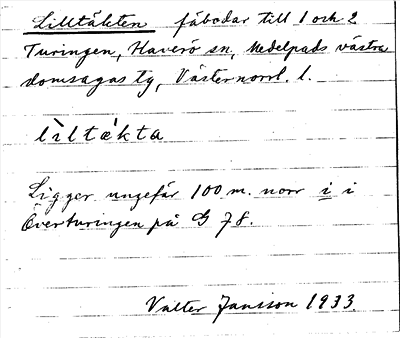 Lilltäkten fäbodar till 1 och 2
Turingen, Haverö sn, Medelpads västra
domsagas tg, Västernorrl. l.
lìltǽkta
Ligger ungefär 100 m. norr i i
Överturingen på G 78.
Valter Jansson 1933.